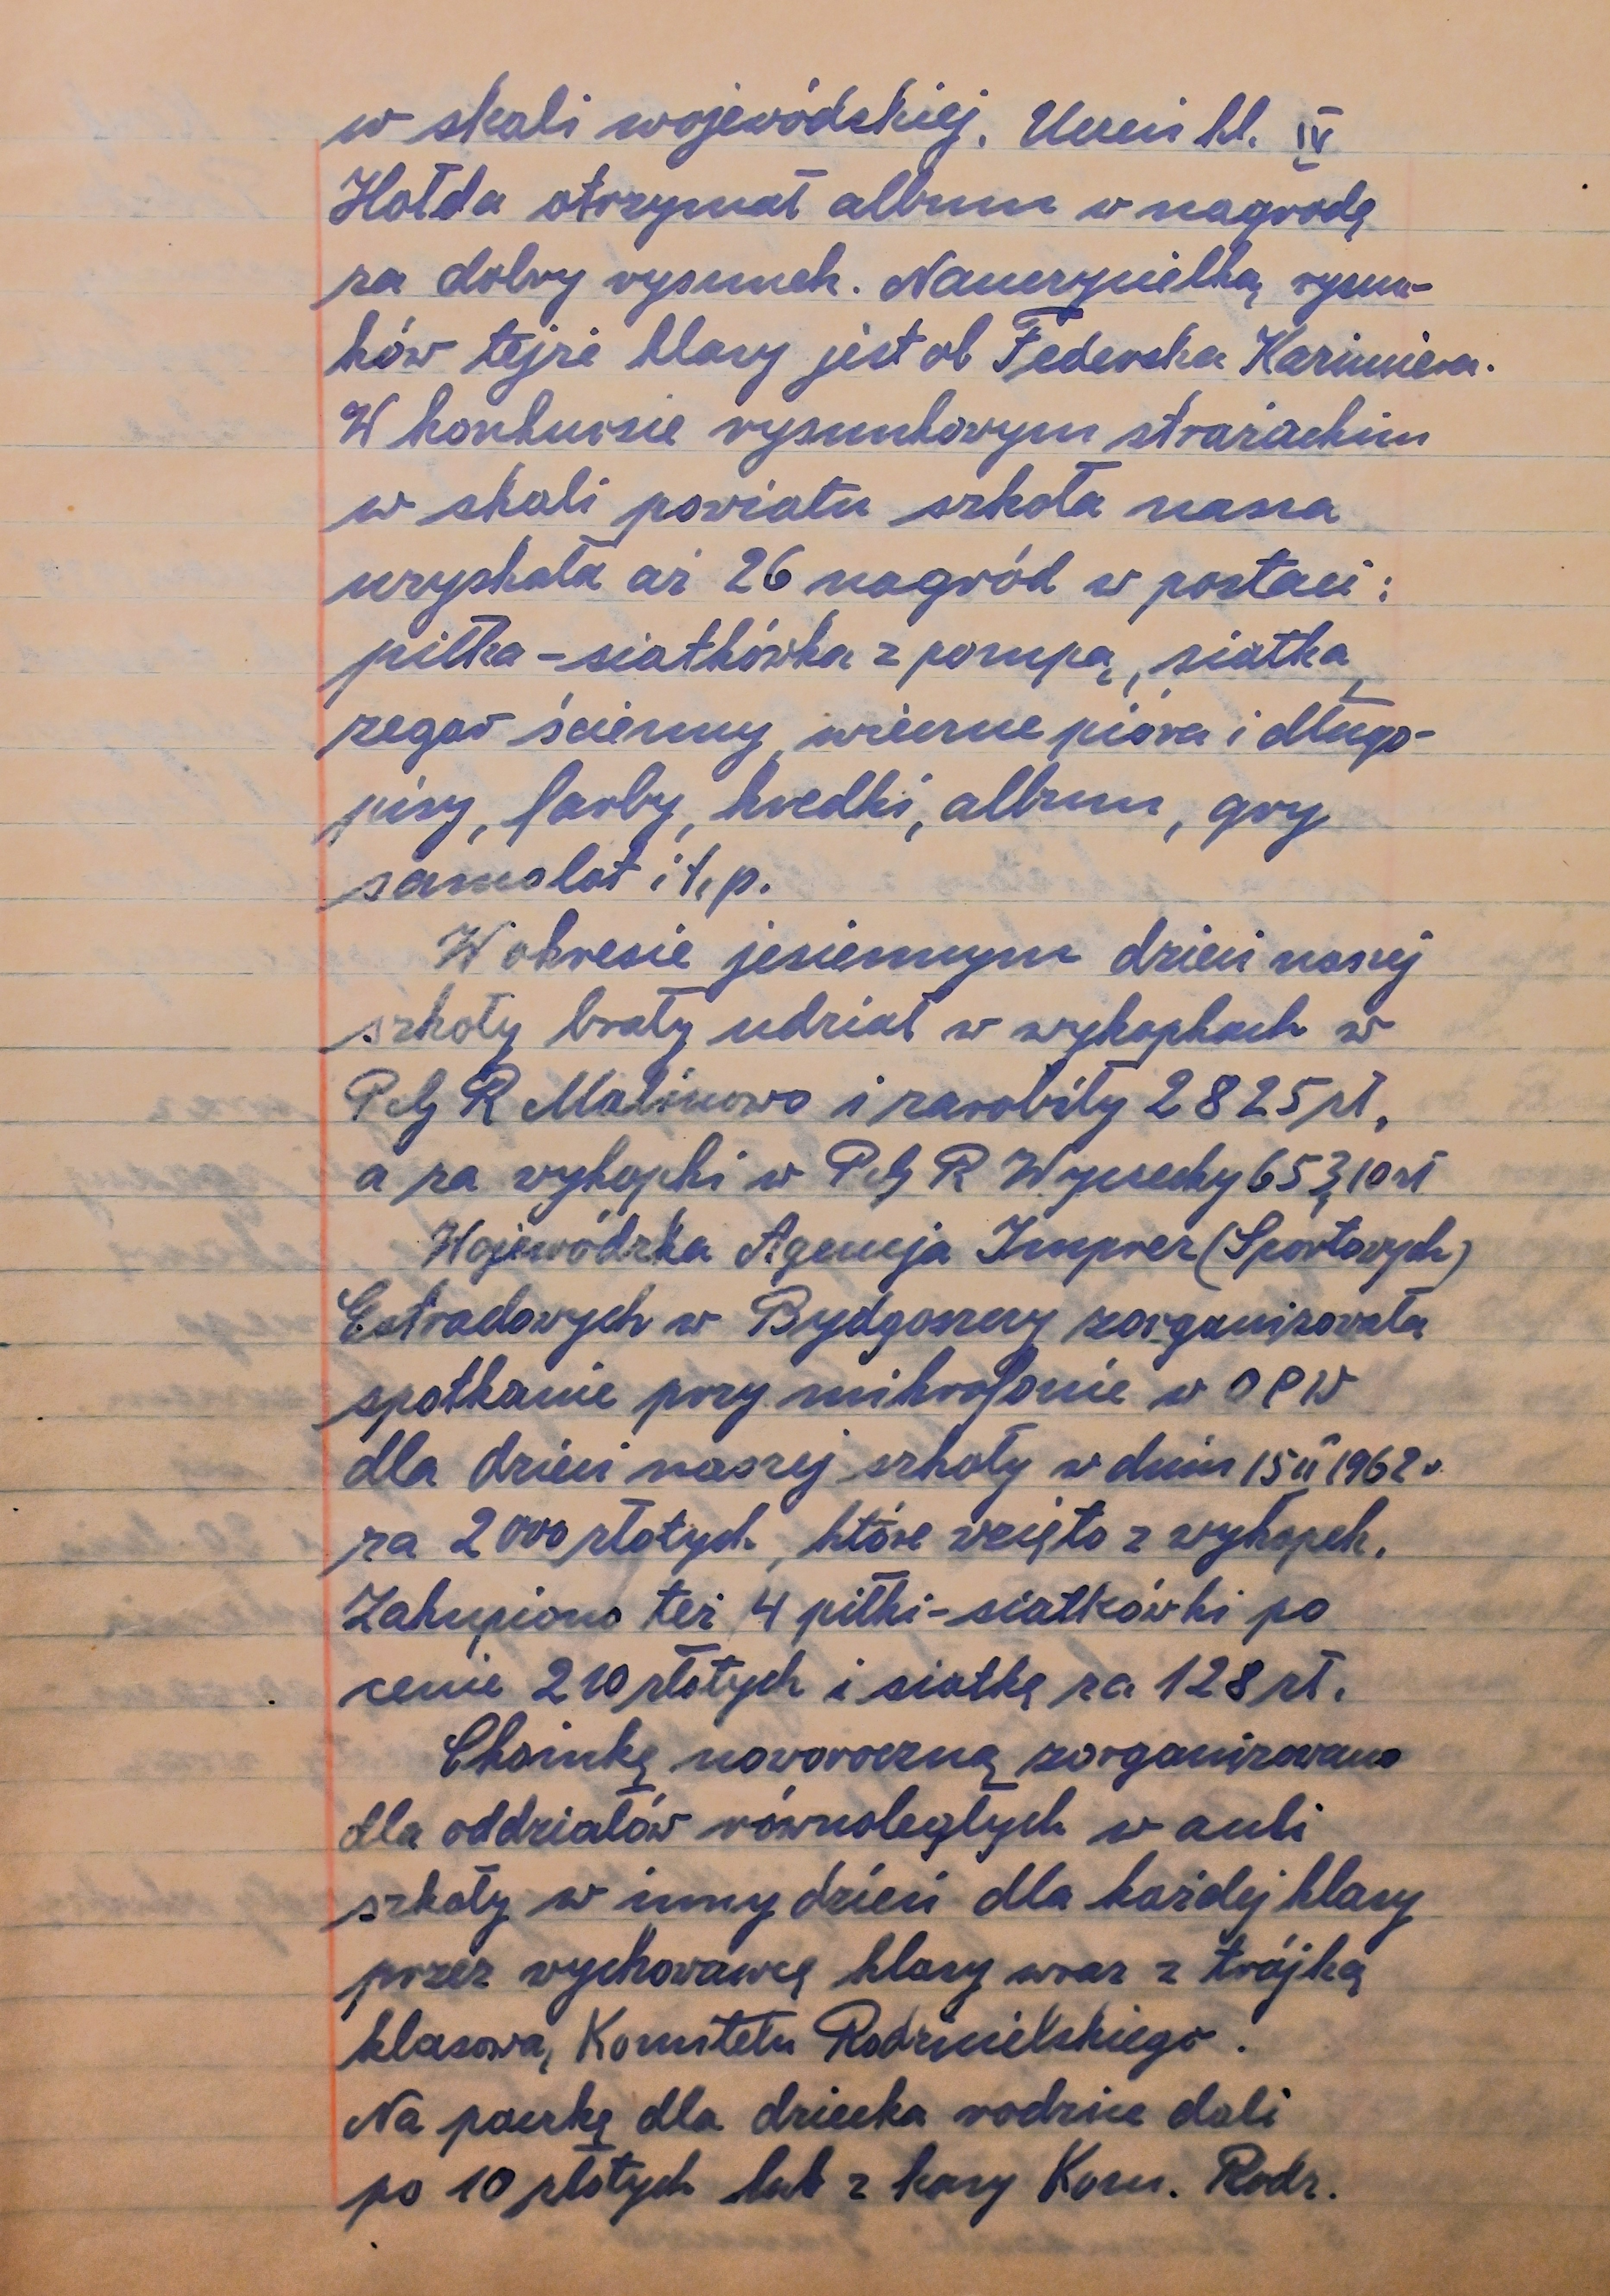 w skali wojewódzkiej. Uczeń kl. IV
Hołda otrzymał album w nagrodę
za dobry rysunek. Nauczycielką rysun-
ków tejże klasy jest ob Federska Kazimiera.
W konkursie rysunkowym strażackim
w skali powiatu szkoła nasza
uzyskała aż 26 nagród w postaci:
piłka-siatkówka z pompą, siatka,
zegar ścienny, wieczne pióra i długo-
pisy, farby, kredki, album, gry
samolot i t.p.
W okresie jesiennym dzieci naszej
szkoły brały udział w wykopkach w
PGR Malinowo i zarobiły 2825 zł,
a za wykopki w PGR Wysocky 653,10 zł
Wojewódzka Agencja Imprez (Sportowych)
Estradowych w Bydgoszczy zorganizowała
spotkanie przy mikrofonie w OPW
dla dzieci naszej szkoły w dniu 15 II 1962 r.
za 2000 złotych, które wzięto z wykopek.
Zakupiono też 4 piłki-siatkówki po
cenie 210 złotych i siatkę za 128 zł.
Choinkę noworoczną zorganizowano
dla oddziałów równoległych w auli
szkoły w inny dzień dla każdej klasy
przez wychowawcę klasy wraz z trójką
klasową Komitetu Rodzicielskiego.
Na paczkę dla dziecka rodzice dali
po 10 złotych lub z kasy Kom. Rodz.